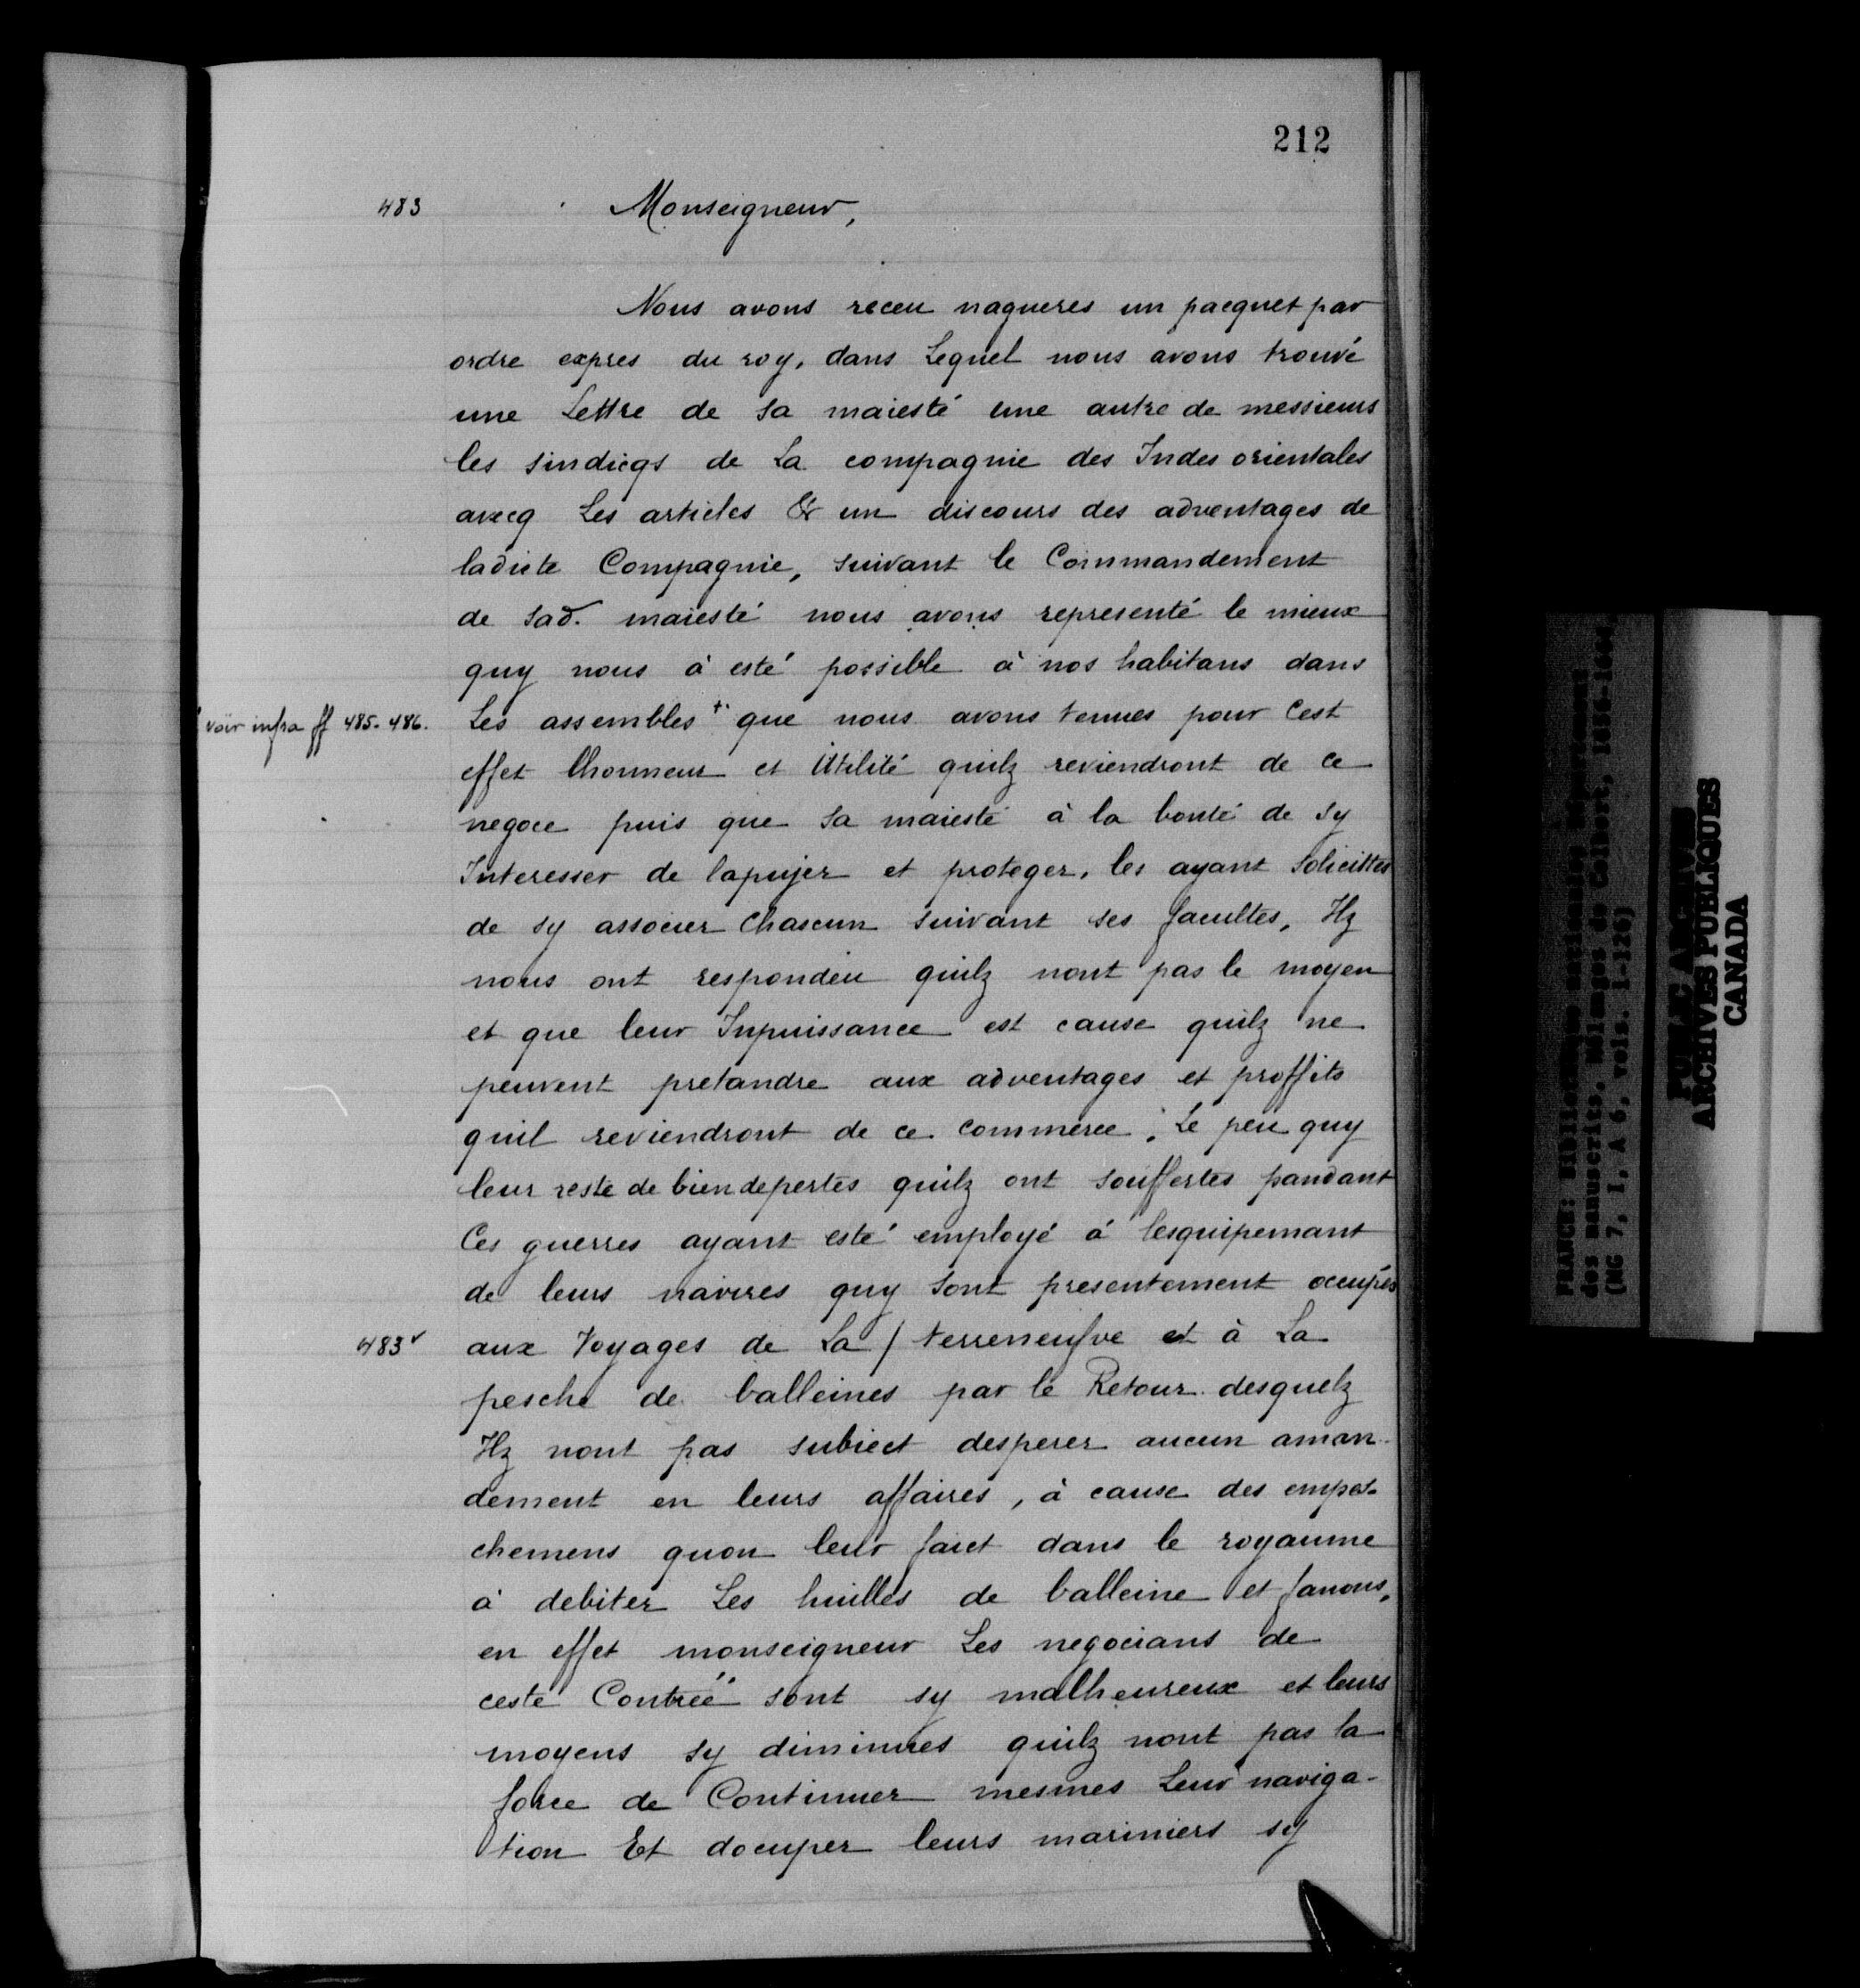 212
483
Monseigneur,
Nous avons receu nagueres un pacquet par
ordre expres du roy, dans Lequel nous avons trouvé
une Lettre de sa maiesté une autre de messieurs
les sindicqs de La compagnie des Indes orientales
avecq Les articles & un discours des adventages de
ladicte Compagnie, suivant le Commandement
de sad. maiesté nous avons representé le mieux
quy nous à esté possible à nos habitans dans
voir infra ff 485-486.
Les assembles +. que nous avons tenues pour Cest
effet lhonneur et Utilité quilz reviendront de ce
negoce puis que sa maiesté à la bonté de sy
Interesser de lapujer et proteger, les ayant solicittes
de sy associer Chascun suivant ses facultes, Ilz
nous ont respondeu quilz nont pas le moyen
et que leur Inpuissance est cause quilz ne
peuvent pretandre aux adventages et proffits
quil reviendront de ce commerce; Le peu quy
leur reste de bien de pertes quilz ont souffertes pandant
Ces guerres ayant esté employé à lesquipemant
de leurs navires quy sont presentement occupés
483v
aux Voyages de La / terreneufve et à La
pesche de balleines par le Retour desquelz
Ilz nont pas subiect desperer aucun aman-
dement en leurs affaires, à cause des empes-
chemens quon leur faict dans le royaume
à debiter Les huilles de balleine et fanons,
en effet monseigneur Les negocians de
ceste Contrée sont sy malheureux et leurs
moyens sy diminues quilz nont pas la
force de Continuer mesmes Leur naviga-
tion Et docuper leurs mariniers sy
FRANCE: Bibliothèque nationale, Département
des manuscrits, Mélanges de Colbert,
(MG 7, I, A 6, vols. 1-126)
PUBLIC ARCHIVES
ARCHIVES PUBLIQUES
CANADA